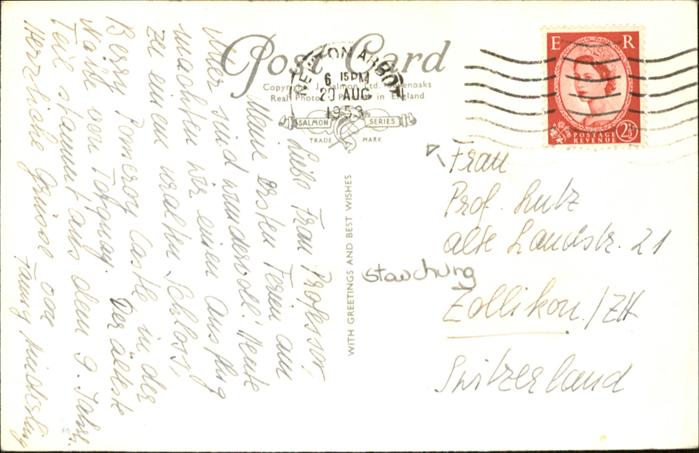 Post Card
Copyright J. Salmon Ltd. Sevenoaks
Real Photo Printed in England
SALMON SERIES
TRADE MARK
NEWTON ABBOT
6 15 PM
20 AUG
1953
E R
2½
POSTAGE
REVENUE
WITH GREETINGS AND BEST WISHES
Liebe Frau Professor,
Meine ersten Ferien am
Meer sind wundervoll! Heute
machten wir einen Ausflug
zu einem uralten Schloss,
Berry Pomeroy Castle in der
Nähe von Torquay. Der älteste
Teil stammt aus dem 9. Jahrh.
Herzliche Grüsse von
Frau
Prof. Lutz
alte Landstr. 21
Zollikon / ZH
Switzerland
stauchung